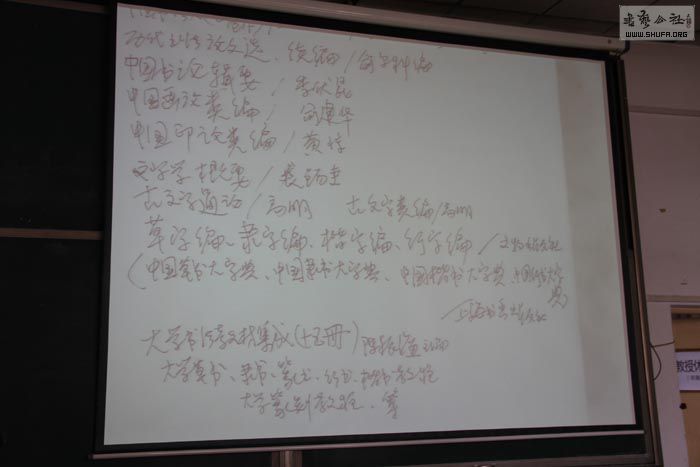 书艺公社
WWW.SHUFA.ORG
历代书法论文选、续编/
中国书论辑要/季伏昆
中国画论类编/俞建华
中国印论类编/黄惇
文字学概要/裘锡圭
古文字通论/高明 古文字类编/高明
草字编、隶字编、楷字编、行字编/文物出版社
(中国草书大字典、中国隶书大字典、中国楷书大字典、中国行书大字典
上海书画出版社
大学书法教材集成(十五册)陈振濂主编
大学草书、隶书、篆书、行书、楷书教程
大学篆刻教程、等
教授休